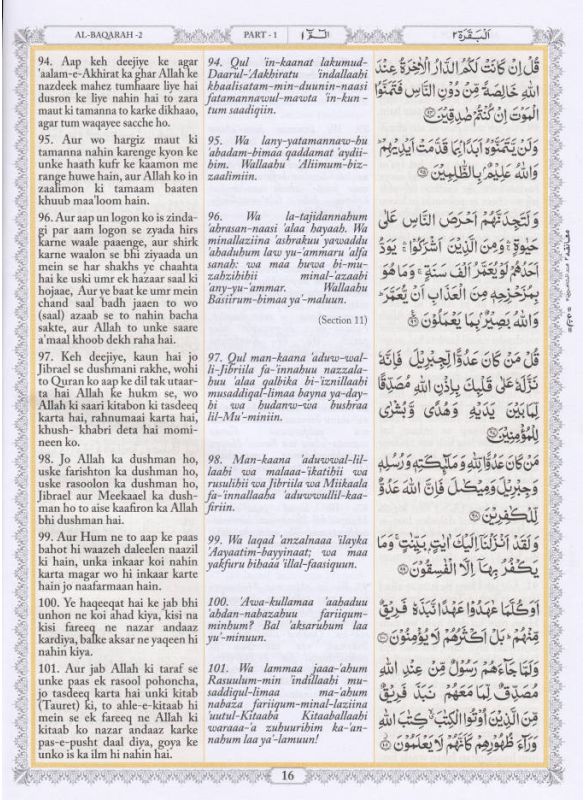 AL-BAQARAH -2
PART - 1
الٓمّٓ ١
اَلْبَقَرَة ٢
94. Aap keh deejiye ke agar
'aalam-e-Akhirat ka ghar Allah ke
nazdeek mahez tumhaare liye hai
dusron ke liye nahin hai to zara
maut ki tamanna to karke dikhaao,
agar tum waqayee sacche ho.
95. Aur wo hargiz maut ki
tamanna nahin karenge kyon ke
unke haath kufr ke kaamon me
range huwe hain, aur Allah ko in
zaalimon ki tamaam baaten
khuub maa'loom hain.
96. Aur aap un logon ko is zinda-
gi par aam logon se zyada hirs
karne waale paaenge, aur shirk
karne waalon se bhi ziyaada un
mein se har shakhs ye chaahta
hai ke uski umr ek hazaar saal ki
hojaae, Aur ve baat ke umr mein
chand saal badh jaaen to wo
(saal) azaab se to nahin bacha
sakte, aur Allah to unke saare
a'maal khoob dekh raha hai.
97. Keh deejiye, kaun hai jo
Jibrael se dushmani rakhe, wohi
to Quran ko aap ke dil tak utaar-
ta hai Allah ke hukm se, wo
Allah ki saari kitabon ki tasdeeq
karta hai, rahnumaai karta hai,
khush- khabri deta hai momi-
neen ko.
98. Jo Allah ka dushman ho,
uske farishton ka dushman ho,
uske rasoolon ka dushman ho,
Jibrael aur Meekaael ka dush-
man ho to aise kaafiron ka Allah
bhi dushman hai.
99. Aur Hum ne to aap ke paas
bahot hi waazeh daleelen naazil
ki hain, unka inkaar koi nahin
karta magar wo hi inkaar karte
hain jo naafarmaan hain.
100. Ye haqeeqat hai ke jab bhi
unhon ne koi ahad kiya, kisi na
kisi fareeq ne nazar andaaz
kardiya, balke aksar ne yaqeen hi
nahin kiya.
101. Aur jab Allah ki taraf se
unke paas ek rasool pohoncha,
jo tasdeeq karta hai unki kitab
(Tauret) ki, to ahle-e-kitaab hi
mein se ek fareeq ne Allah ki
kitaab ko nazar andaaz karke
pas-e-pusht daal diya, goya ke
unko is ka ilm hi nahin hai.
94. Qul 'in-kaanat lakumud-
Daarul-'Aakhiratu 'indallaahi
khaalisatam-min-duunin-naasi
fatamannawul-mawta 'in-kun -
tum saadiqiin.
95. Wa lany-yatamannaw-hu
'abadam-bimaa qaddamat 'aydii-
him. Wallaahu 'Aliimum-biz-
zaalimiin.
96. Wa la-tajidannahum
'ahrasan-naasi 'alaa hayaah. Wa
minallaziina 'ashrakuu yawaddu
'ahaduhum law yu-'ammaru 'alfa
sanah: wa maa huwa bi-mu-
zahzihihii minal-'azaabi
'any-yu-'ammar. Wallaahu
Basiirum-bimaa ya'-maluun.
(Section 11)
97. Qul man-kaana 'aduw-wal-
li-Jibriila fa-'innahuu nazzala-
huu 'alaa qalbika bi-'iznillaahi
musaddiqal-limaa bayna ya-day-
hi wa hudanw-wa bushraa
lil-Mu'-miniin.
98. Man-kaana 'aduwwal-lil-
laahi wa malaaa-'ikatihii wa
rusulihii wa Jibriila wa Miikaala
fa-'innallaaha 'aduwwullil-kaa-
firiin.
99. Wa laqad 'anzalnaaa 'ilayka
'Aayaatim-bayyinaat; wa maa
yakfuru bihaaa 'illal-faasiquun.
100. 'Awa-kullamaa 'aahaduu
'ahdan-nabazahuu fariiqum-
minhum? Bal 'aksaruhum laa
yu'-minuun.
101. Wa lammaa jaaa-'ahum
Rasuulum-min 'indillaahi mu-
saddiqul-limaa ma-'ahum
nabaza fariiqum-minal-laziina
'uutul-Kitaaba Kitaaballaahi
waraaa-'a zuhuurihim ka-'an-
nahum laa ya'-lamuun!
قُلْ اِنْ كَانَتْ لَكُمُ الدَّارُ الْاٰخِرَةُ عِنْدَ
اللهِ خَالِصَةً مِّنْ دُوْنِ النَّاسِ فَتَمَنَّوُا
الْمَوْتَ اِنْ كُنْتُمْ صٰدِقِيْنَ ۹۴
وَلَنْ يَّتَمَنَّوْهُ اَبَدًۢا بِمَا قَدَّمَتْ اَيْدِيْهِمْ ؕ
وَاللهُ عَلِيْمٌۢ بِالظّٰلِمِيْنَ ۹۵
وَلَتَجِدَنَّهُمْ اَحْرَصَ النَّاسِ عَلٰى
حَيٰوةٍ ۚ وَمِنَ الَّذِيْنَ اَشْرَكُوْا ۚ يَوَدُّ
اَحَدُهُمْ لَوْ يُعَمَّرُ اَلْفَ سَنَةٍ ۚ وَمَا هُوَ
بِمُزَحْزِحِهٖ مِنَ الْعَذَابِ اَنْ يُّعَمَّرَ ؕ
وَاللهُ بَصِيْرٌۢ بِمَا يَعْمَلُوْنَ ۹۶
قُلْ مَنْ كَانَ عَدُوًّا لِّجِبْرِيْلَ فَاِنَّهٗ
نَزَّلَهٗ عَلٰى قَلْبِكَ بِاِذْنِ اللهِ مُصَدِّقًا
لِّمَا بَيْنَ يَدَيْهِ وَهُدًى وَّبُشْرٰى
لِلْمُؤْمِنِيْنَ ۹۷
مَنْ كَانَ عَدُوًّا لِّلّٰهِ وَمَلٰٓئِكَتِهٖ وَرُسُلِهٖ
وَجِبْرِيْلَ وَمِيْكٰىلَ فَاِنَّ اللهَ عَدُوٌّ
لِّلْكٰفِرِيْنَ ۹۸
وَلَقَدْ اَنْزَلْنَاۤ اِلَيْكَ اٰيٰتٍۭ بَيِّنٰتٍ ۚ وَمَا
يَكْفُرُ بِهَاۤ اِلَّا الْفٰسِقُوْنَ ۹۹
اَوَكُلَّمَا عٰهَدُوْا عَهْدًا نَّبَذَهٗ فَرِيْقٌ
مِّنْهُمْ ؕ بَلْ اَكْثَرُهُمْ لَا يُؤْمِنُوْنَ ۱۰۰
وَلَمَّا جَآءَهُمْ رَسُوْلٌ مِّنْ عِنْدِ اللهِ
مُصَدِّقٌ لِّمَا مَعَهُمْ نَبَذَ فَرِيْقٌ
مِّنَ الَّذِيْنَ اُوْتُوا الْكِتٰبَ ۙ كِتٰبَ اللهِ
وَرَآءَ ظُهُوْرِهِمْ كَاَنَّهُمْ لَا يَعْلَمُوْنَ ۱۰۱
16